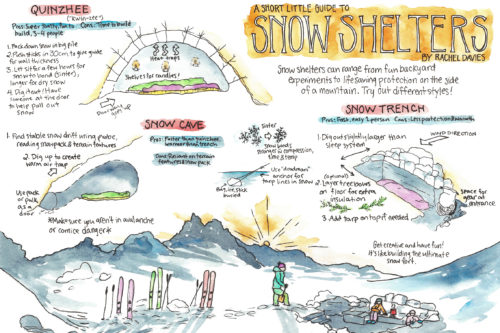 QUINZHEE
("Kwin-zee")
Pros: Super sturdy, fun to build, 3-4 people
Cons: Time to build
1. Pack down snow in big pile
2. Push sticks in 30cm to give guide for wall thickness
3. Let sit for a few hours for snow to bond (sinter), longer for dry snow
4. Dig it out! Have someone at the door to help pull out snow
Heat traps
Shelves for candles!
A SHORT LITTLE GUIDE TO
SNOW SHELTERS
BY RACHEL DAVIES
Snow shelters can range from fun backyard
experiments to lifesaving protection on the side
of a mountain. Try out different styles!
SNOW CAVE
Pros: Faster than quinzhee, warmer than trench
Cons: Reliant on terrain features & snowpack
1. Find stable snow drift using probe, reading snowpack & terrain features
2. Dig up to create warm air trap
Use pack or pulk as a door
*Make sure you aren't in avalanche
or cornice danger*
Sinter
Snow bonds
stronger in compression,
time & temp
Use "deadman"
anchor for
tarp lines in snow
SNOW TRENCH
Pros: Fast, easy 1 person
Cons: Less protection & warmth
1. Dig out slightly larger than
sleep system
WIND DIRECTION
(optional)
2. Layer tree boughs
on floor for extra
insulation
3. Add tarp on top if needed
space for
gear at
entrance
Get creative and have fun!
It's like building the ultimate
snow fort.